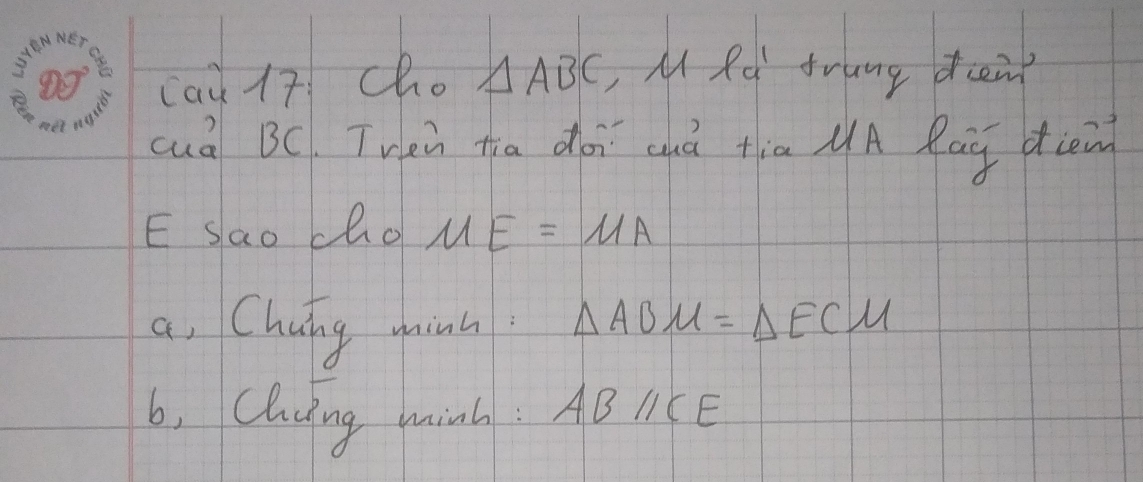 LUYỆN NÉT CHỮ
DJ
Rèn nết người
Câu 17: Cho ΔABC, M là trung điểm
của BC. Trên tia đối của tia MA lấy điểm
E sao cho ME = MA
a, Chứng minh : ΔABM = ΔECM
b, Chứng minh : AB // CE